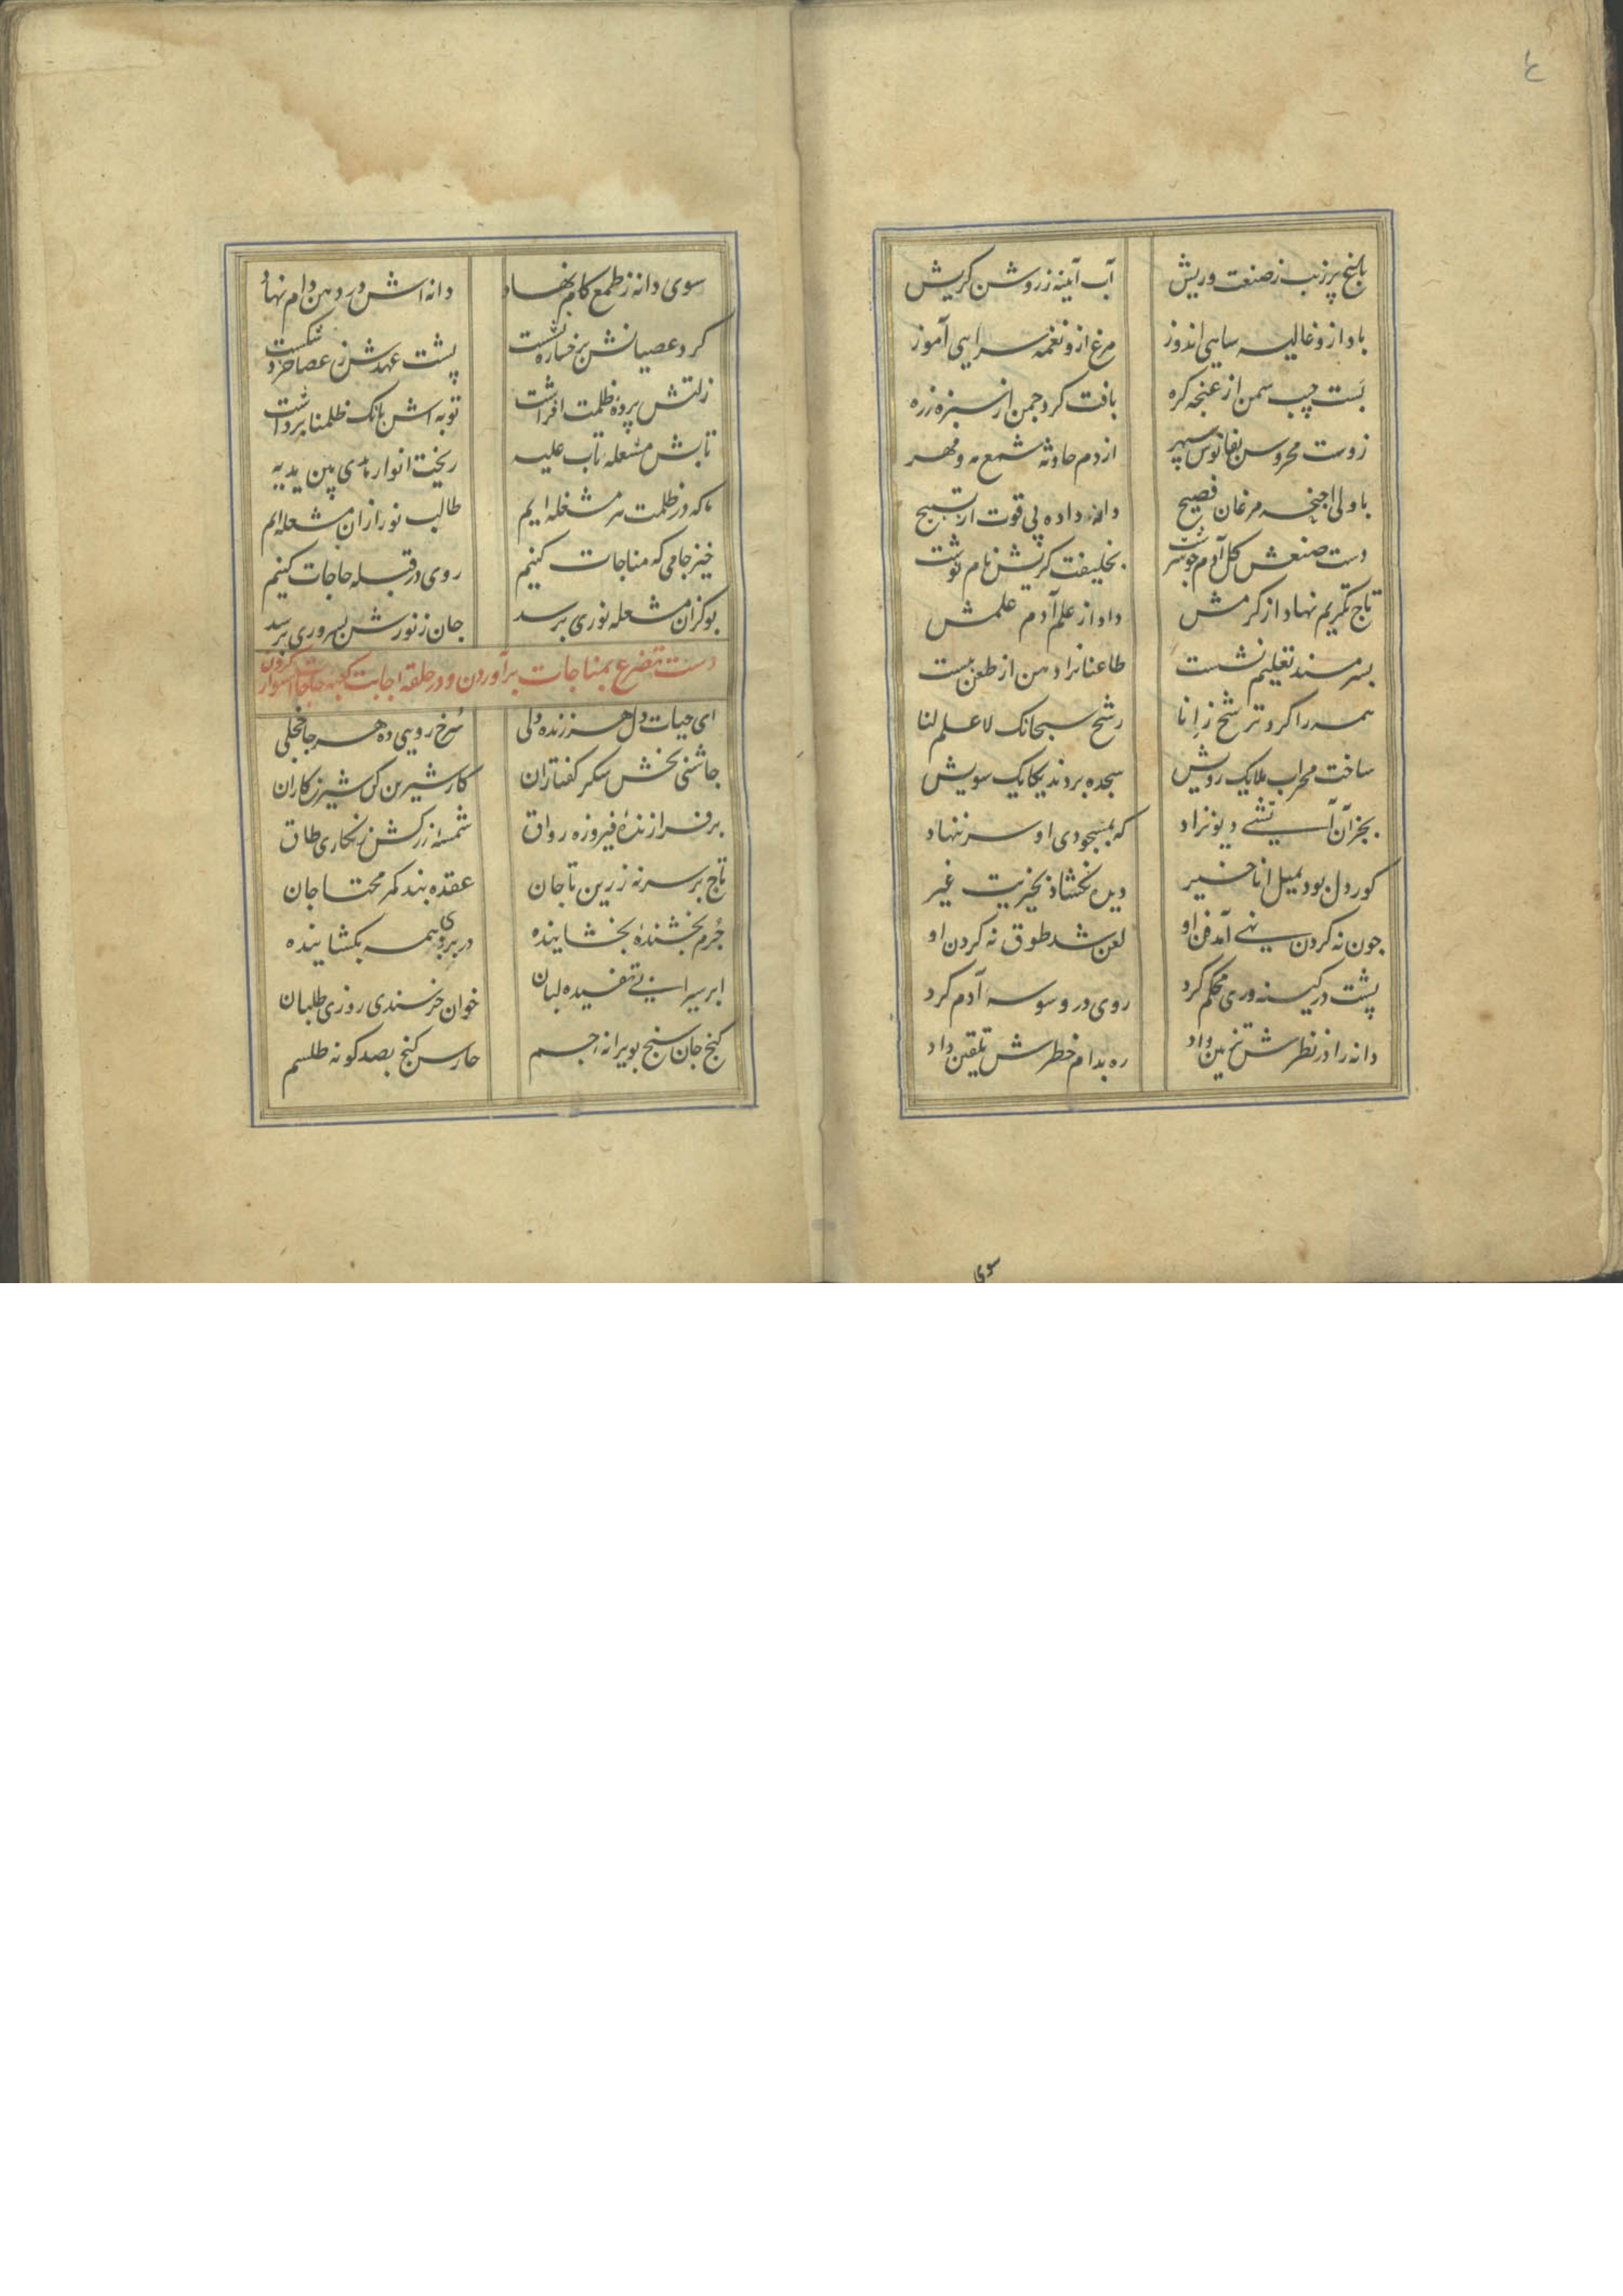 ٤
باغ پر زیب ز صنعت وریش
آب آیینه ز روشن گریش
باد ازو غالیه سایی اندوز
مرغ ازو نغمه سرایی آموز
بست جیب سمن از غنچه گره
بافت گرد چمن از سبزه زره
زوست محروس بفانوس سپهر
از دم حادثه شمع مه و مهر
با اولی اجنحه مرغان فصیح
دانه داده پی قوت از تسبیح
دست صنعش گل آدم چو سرشت
بخلیفت گریش نام نوشت
تاج تکریم نهاد از کرمش
داد از علم آدم علمش
بسر مسند تعلیم نشست
طاعنانرا دهن از طعن ببست
همه را کرد ترشح ز انا
رشح سبحانک لا علم لنا
ساخت محراب ملایک رویش
سجده بردند یکایک سویش
بجز آن آتشیی دیو نژاد
که بمسجودی او سر ننهاد
کور دل بود بمیل انا خیر
دیده نگشاد بخیریت غیر
چون نه گردن نهیی آمد فن او
لعن شد طوق نه گردن او
پشت در کینه وری محکم کرد
روی در وسوسه آدم کرد
دانه را در نظرش تزیین داد
ره بدام خطرش تلقین داد
سوی
سوی دانه ز طمع کام نهاد
دانه اش در دهن دام نهاد
گرد عصیانش بر خساره نشست
پشت عهدش ز عصا خرد شکست
زلتش پرده ظلمت افراشت
توبه اش بانک ظلمنا برداشت
تابش مشعله تاب علیه
ریخت انوار هدی بین یدیه
ما که در ظلمت هر مشغله ایم
طالب نور از آن مشعله ایم
خیز جامی که مناجات کنیم
روی در قبله حاجات کنیم
بو کزان مشعله نوری برسد
جان ز نورش بسروری برسد
دست تضرع بمناجات برآوردن و در حلقه اجابت کعبه حاجات استوار کردن
ای حیات دل هر زنده دلی
سرخ رویی ده هر جا خجلی
چاشنی بخش شکر گفتاران
کار شیرین کن شیرین کاران
برفرازنده فیروزه رواق
شمسه زرکش زنگاری طاق
تاج بر سر نه زرین تاجان
عقده بند کمر محتاجان
جرم بخشنده بخشاینده
در بروی همه بگشاینده
ابر سیرابی تفسیده لبان
خوان خرسندی روزی طلبان
گنج جان سنج بویرانه جسم
حارس گنج بصد گونه طلسم